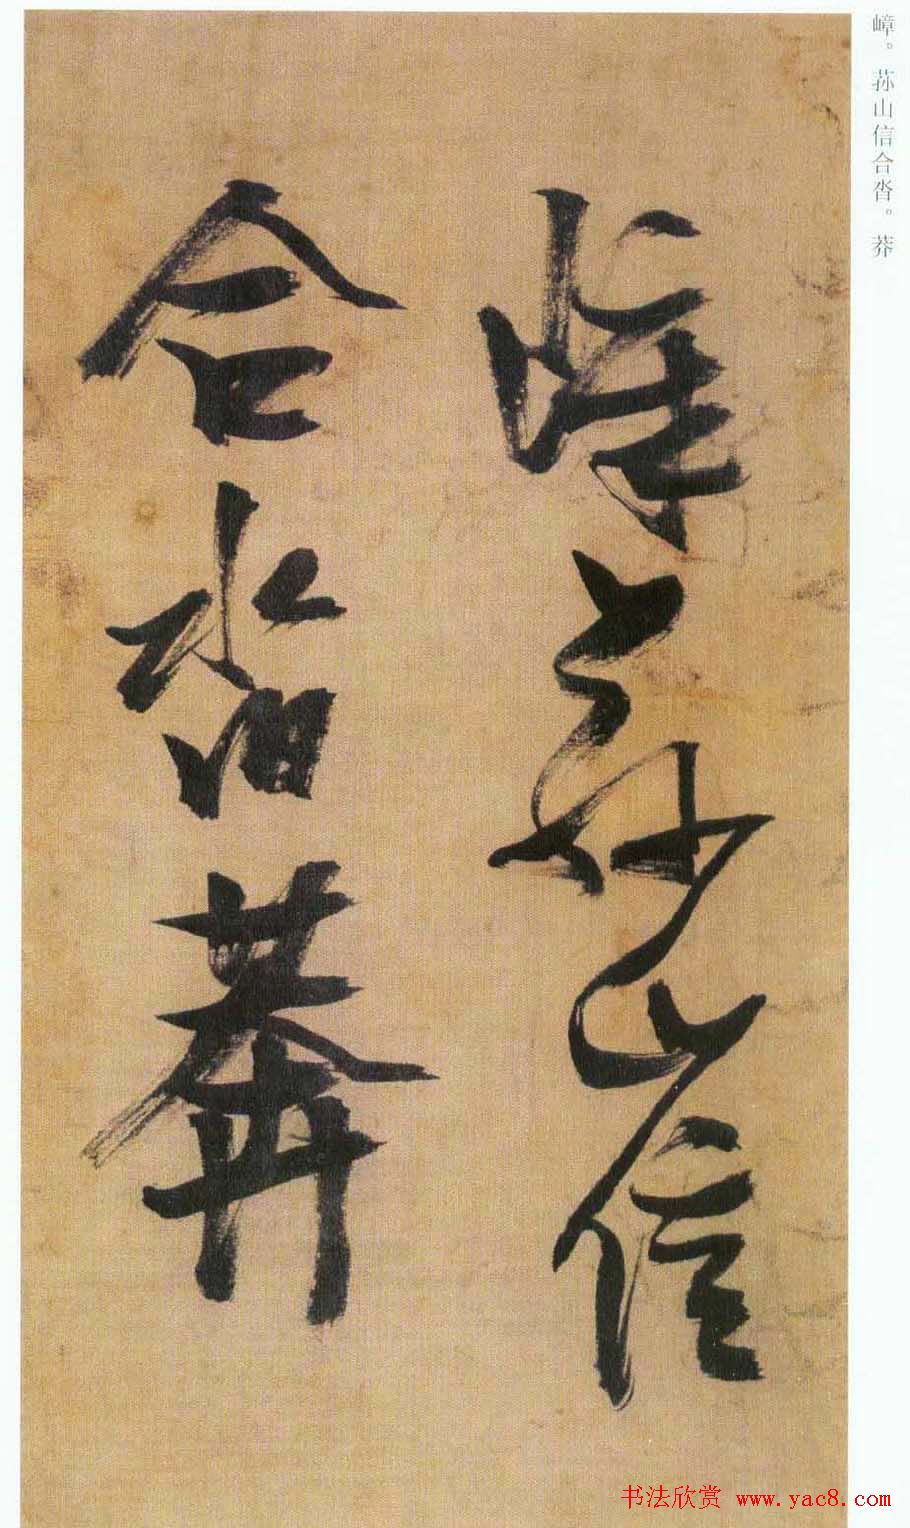 嶂。荪山信合沓。莽
嶂荪山信
合沓莽
书法欣赏 www.yac8.com